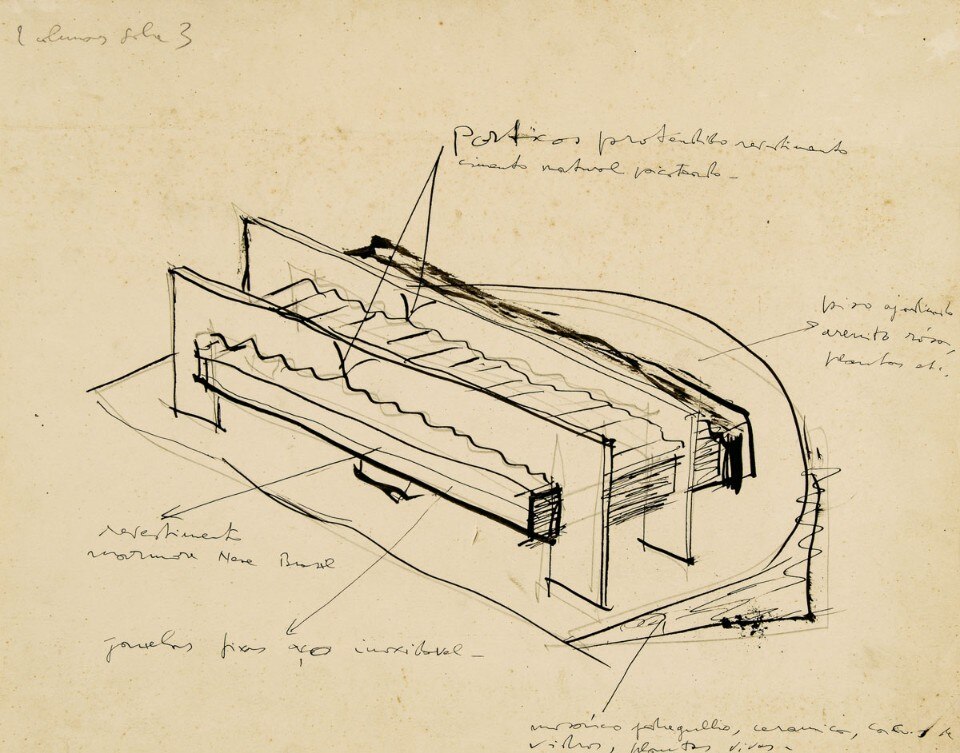 Porticos protendido revestimento
cimento natural picoteado -
piso ajardinado
arenito rósa,
plantas etc.
revestimento
marmore Nere Brasil
janelas fixas aço inoxidavel -
mosaico pedregulho, ceramica, cacos de
vidros, plantas vivas -